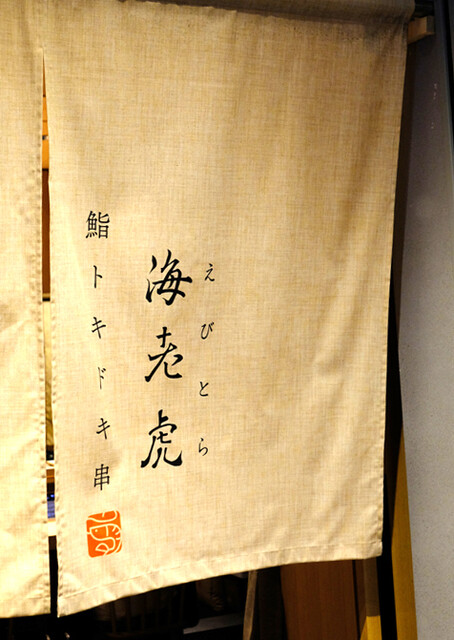 えびとら
海老虎
鮨トキドキ串